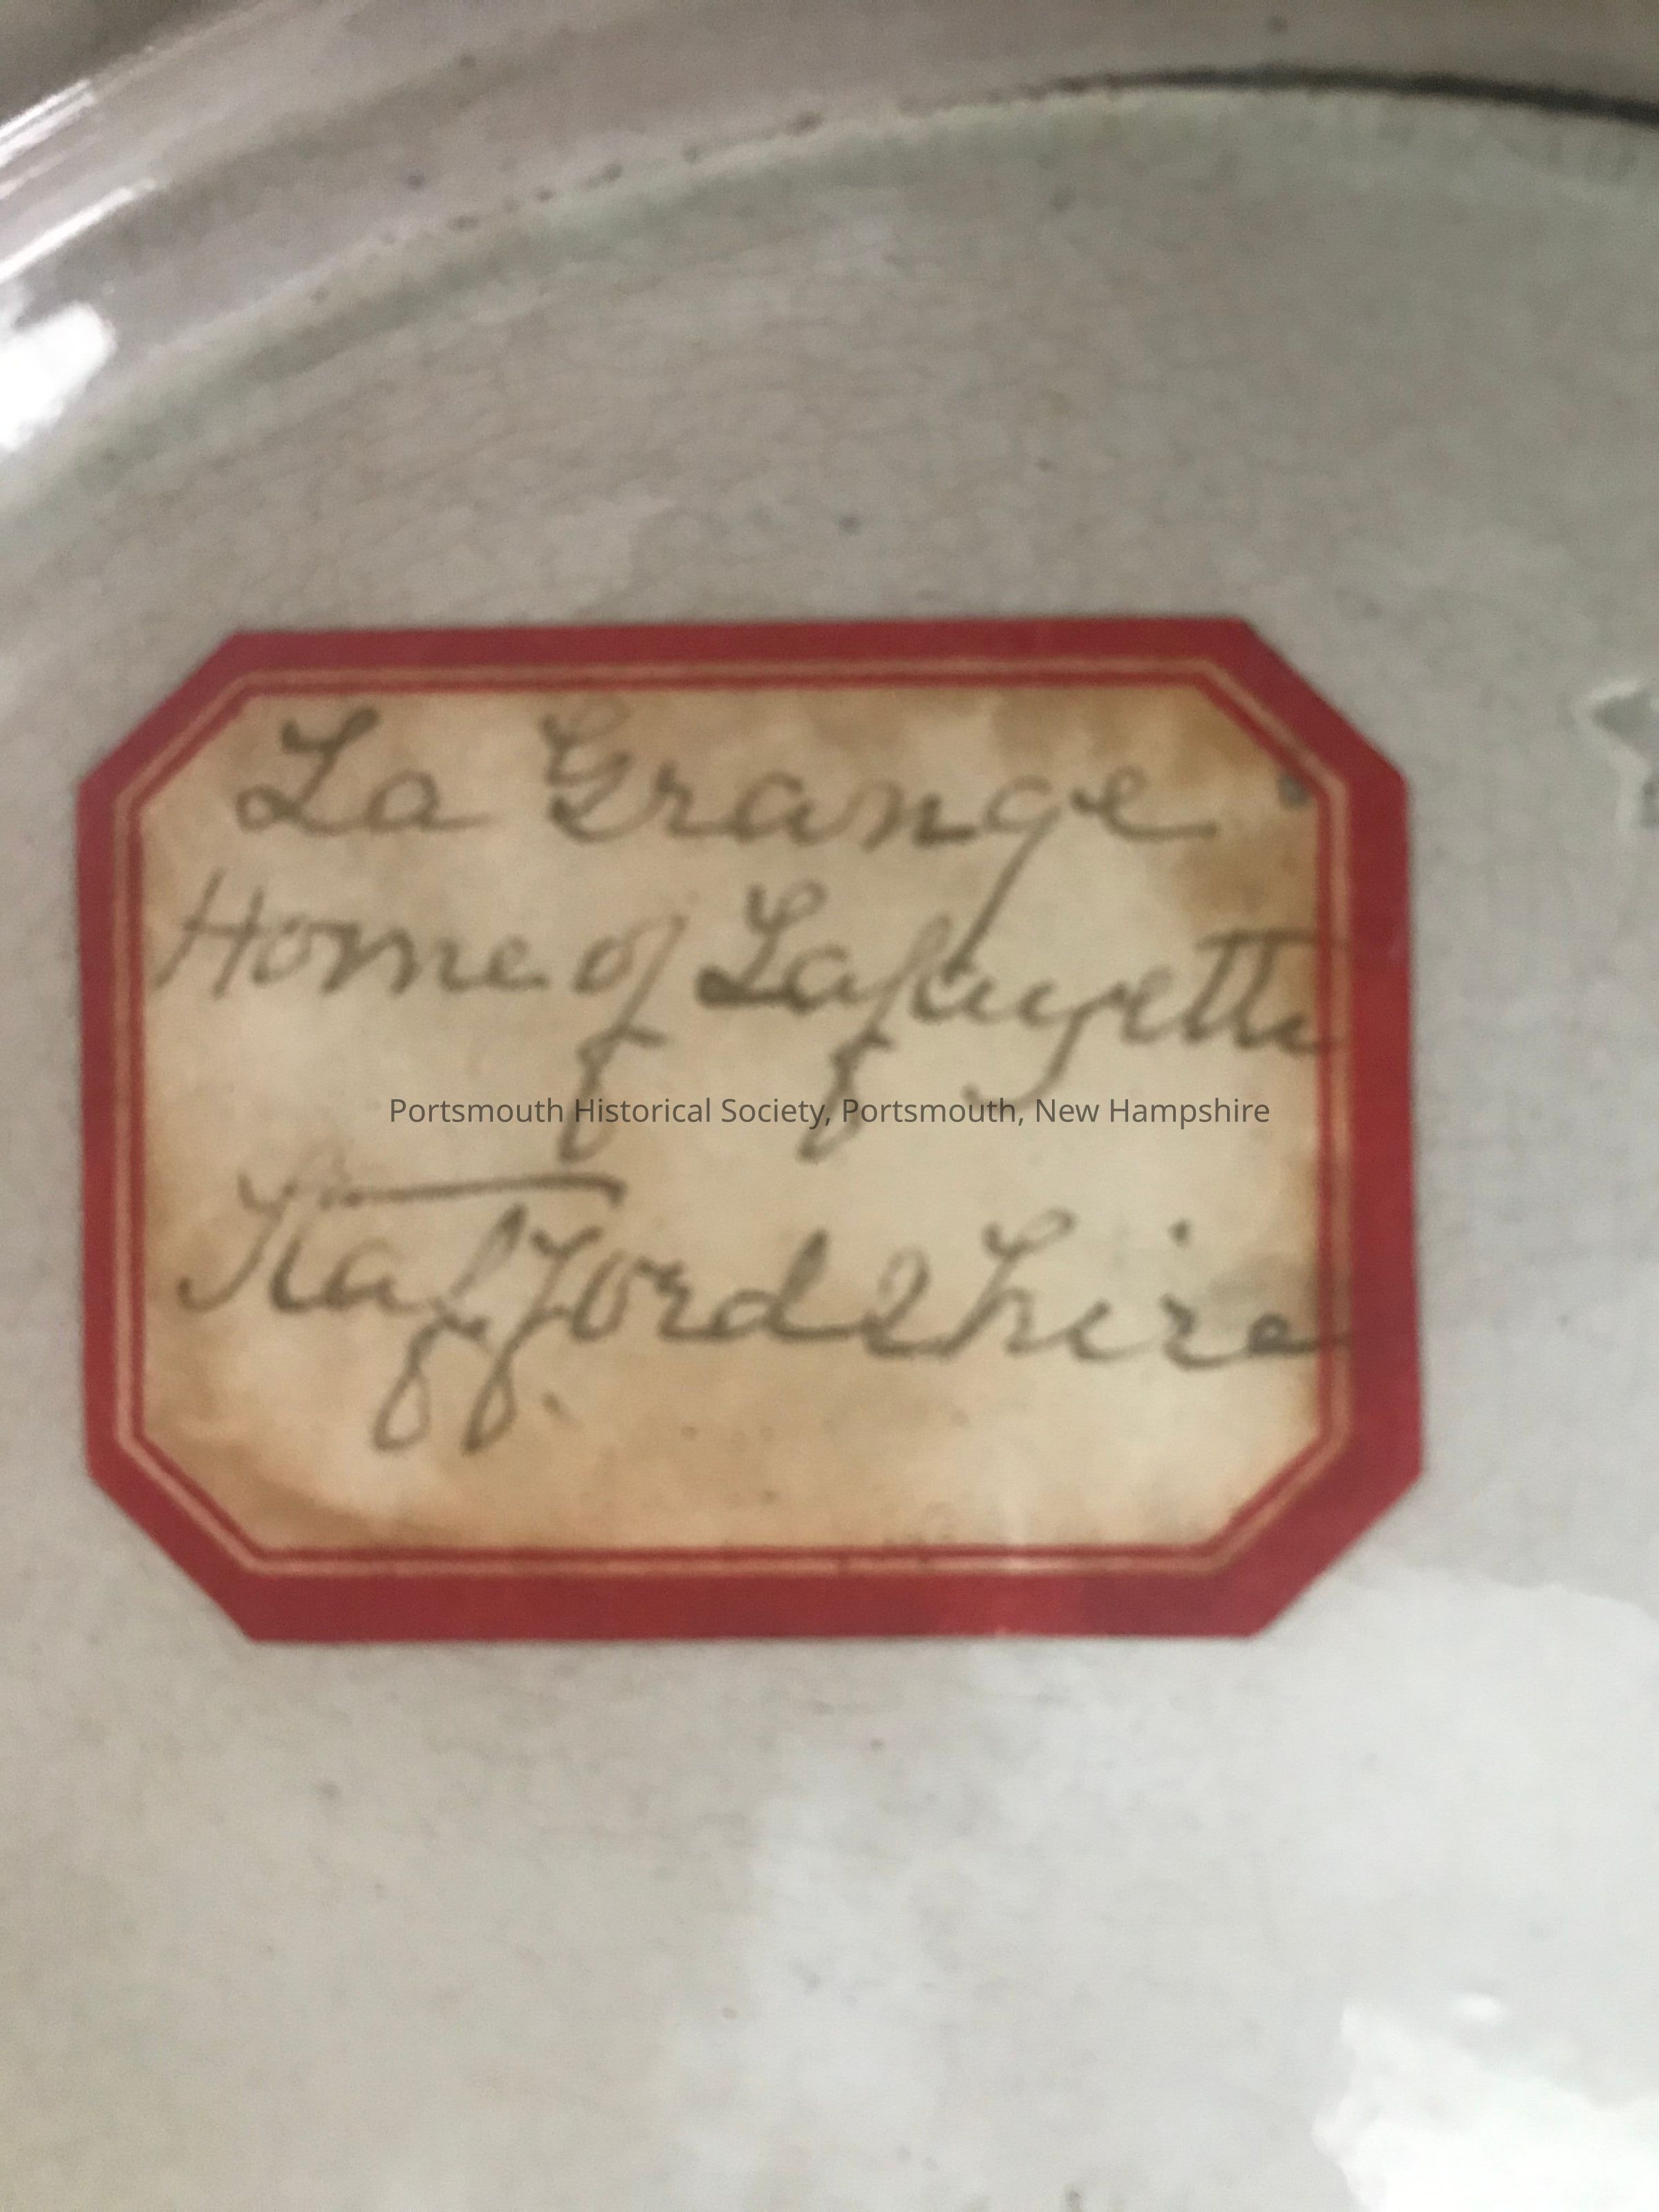 La Grange
Home of Lafayette
Portsmouth Historical Society, Portsmouth, New Hampshire
Staffordshire